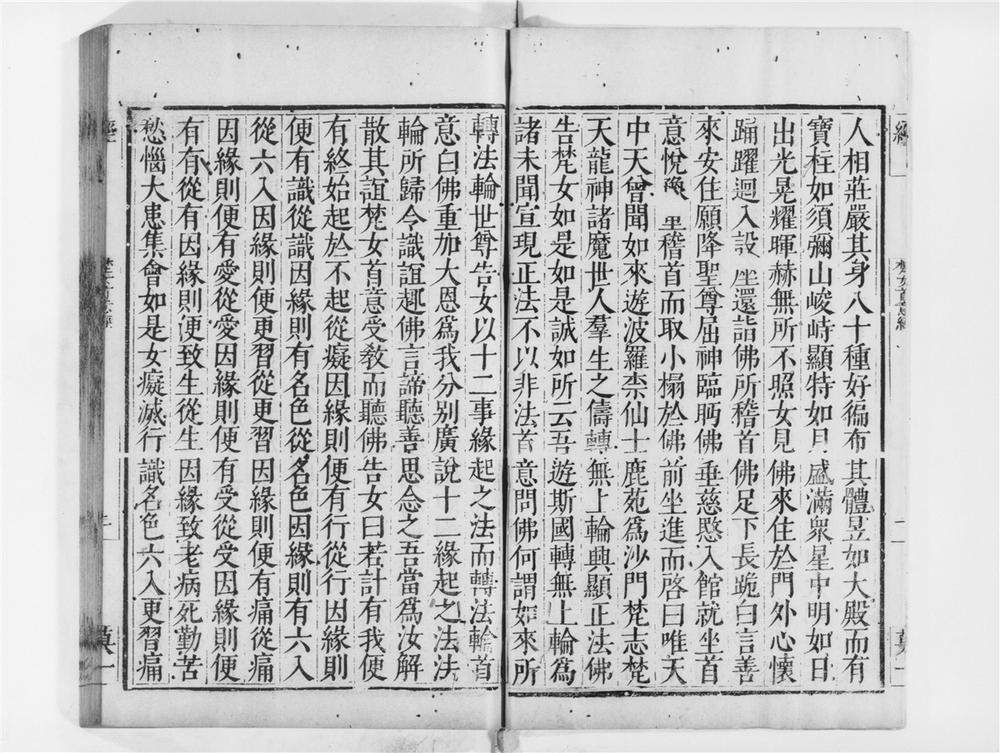 人相莊嚴其身八十種好徧布其體昱如大殿而有
寶柱如須彌山峻峙顯特如月盛滿衆星中明如日
出光晃耀暉赫無所不照女見佛來住於門外心懷
踊躍迴入設座還詣佛所稽首佛足下長跪白言善
來安住願降聖尊屈神臨眄佛垂慈愍入館就坐首
意悅稽首而取小榻於佛前坐進而啓曰唯天
中天曾聞如來遊波羅柰仙士鹿苑爲沙門梵志梵
天龍神諸魔世人羣生之儔轉無上輪興顯正法佛
告梵女如是如是誠如所云吾遊斯國轉無上輪爲
諸未聞宣現正法不以非法首意問佛何謂如來所
轉法輪世尊告女以十二事緣起之法而轉法輪首
意白佛重加大恩爲我分別廣說十二緣起之法法
輪所歸令識誼趣佛言諦聽善思念之吾當爲汝解
散其誼梵女首意受敎而聽佛告女曰若計有我便
有終始起於不起從癡因緣則便有行從行因緣則
便有識從識因緣則有名色從名色因緣則有六入
從六入因緣則便更習從更習因緣則便有痛從痛
因緣則便有愛從愛因緣則便有受從受因緣則便
有有從有因緣則便致生從生因緣致老病死勤苦
愁惱大患集會如是女癡滅行識名色六入更習痛